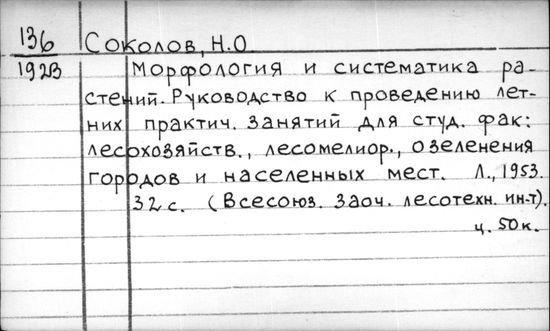 136 Соколов, Н.О.
1923 Морфология и систематика ра-
стений. Руководство к проведению лет-
них практич. занятий для студ. фак:
лесохозяйств., лесомелиор., озеленения
городов и населенных мест. Л., 1953.
32 с. (Всесоюз. заоч. лесотехн. ин-т).
ц. 50 к.